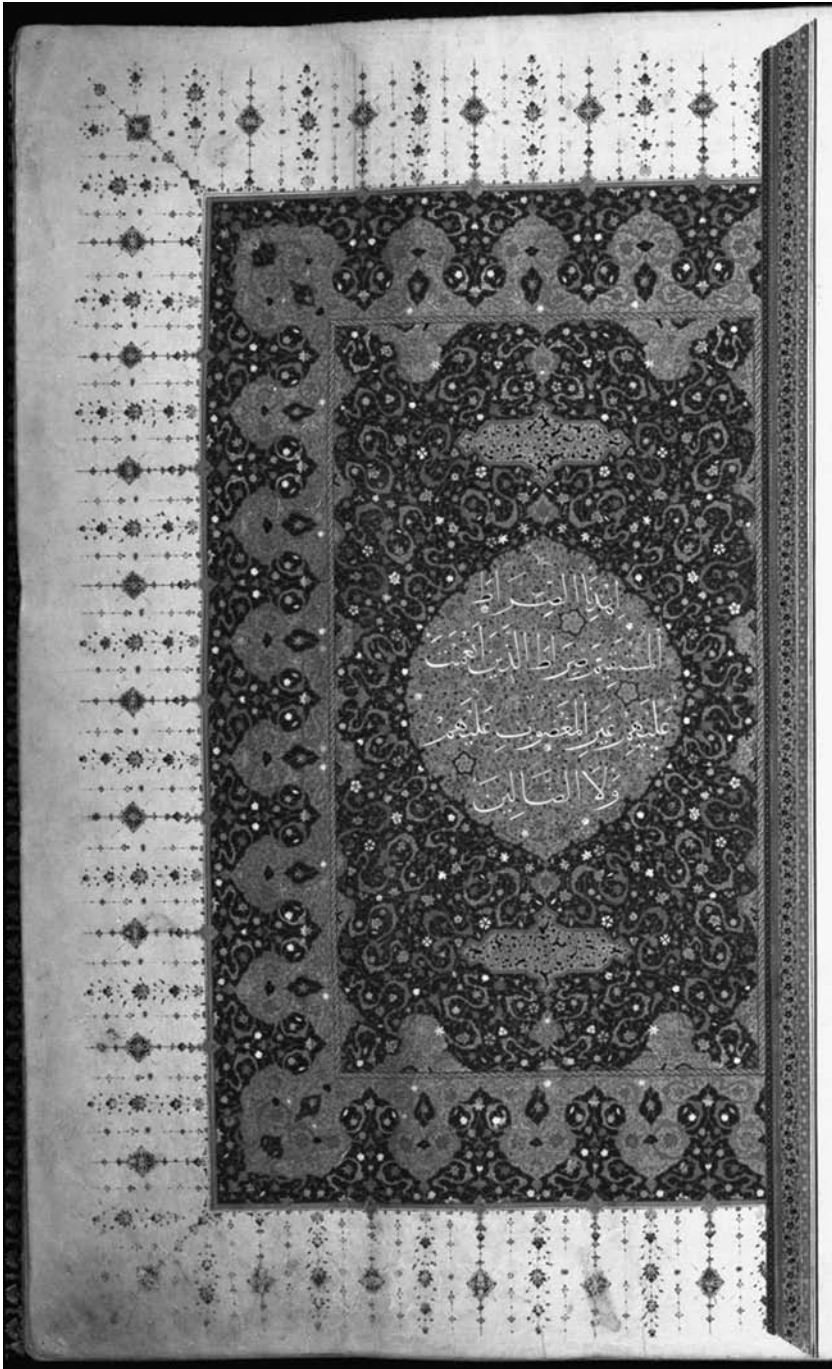 اهْدِنَا الصِّرَاطَ
الْمُسْتَقِيمَ صِرَاطَ الَّذِينَ أَنْعَمْتَ
عَلَيْهِمْ غَيْرِ الْمَغْضُوبِ عَلَيْهِمْ
وَلَا الضَّالِّينَ